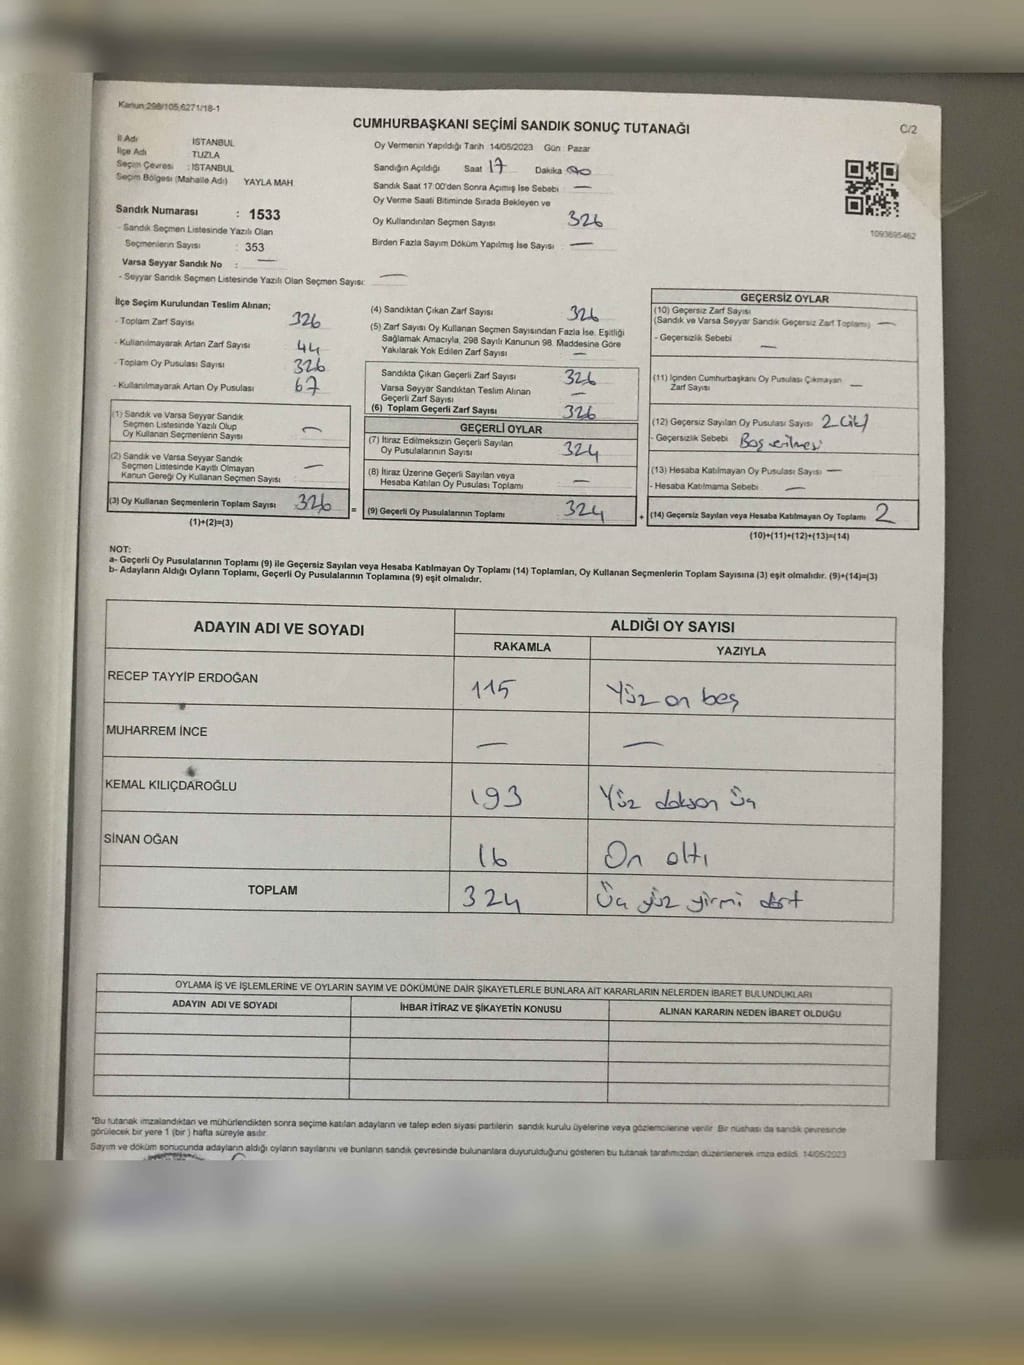 Kanun:298/105,6271/18-1
CUMHURBAŞKANI SEÇİMİ SANDIK SONUÇ TUTANAĞI
C/2
İl Adı İSTANBUL
İlçe Adı TUZLA
Seçim Çevresi : İSTANBUL
Seçim Bölgesi (Mahalle Adı) YAYLA MAH.
Oy Vermenin Yapıldığı Tarih 14/05/2023 Gün : Pazar
Sandığın Açıldığı Saat 17 Dakika 00
Sandık Saat 17:00'den Sonra Açımış İse Sebebi —
Oy Verme Saati Bitiminde Sırada Bekleyen ve
Oy Kullandırılan Seçmen Sayısı 326
Birden Fazla Sayım Döküm Yapılmış İse Sayısı —
1093695462
Sandık Numarası : 1533
- Sandık Seçmen Listesinde Yazılı Olan
Seçmenlerin Sayısı : 353
Varsa Seyyar Sandık No : —
- Seyyar Sandık Seçmen Listesinde Yazılı Olan Seçmen Sayısı: —
İlçe Seçim Kurulundan Teslim Alınan;
- Toplam Zarf Sayısı 326
- Kullanılmayarak Artan Zarf Sayısı 44
- Toplam Oy Pusulası Sayısı 326
- Kullanılmayarak Artan Oy Pusulası 67
(1) Sandık ve Varsa Seyyar Sandık
Seçmen Listesinde Yazılı Olup
Oy Kullanan Seçmenlerin Sayısı —
(2) Sandık ve Varsa Seyyar Sandık
Seçmen Listesinde Kayıtlı Olmayan
Kanun Gereği Oy Kullanan Seçmen Sayısı —
(3) Oy Kullanan Seçmenlerin Toplam Sayısı 326
(1)+(2)=(3)
(4) Sandıktan Çıkan Zarf Sayısı 326
(5) Zarf Sayısı Oy Kullanan Seçmen Sayısından Fazla İse, Eşitliği
Sağlamak Amacıyla, 298 Sayılı Kanunun 98. Maddesine Göre
Yakılarak Yok Edilen Zarf Sayısı —
Sandıkta Çıkan Geçerli Zarf Sayısı 326
Varsa Seyyar Sandıktan Teslim Alınan
Geçerli Zarf Sayısı —
(6) Toplam Geçerli Zarf Sayısı 326
GEÇERLİ OYLAR
(7) İtiraz Edilmeksizin Geçerli Sayılan
Oy Pusulalarının Sayısı 324
(8) İtiraz Üzerine Geçerli Sayılan veya
Hesaba Katılan Oy Pusulası Toplamı —
= (9) Geçerli Oy Pusulalarının Toplamı 324
GEÇERSİZ OYLAR
(10) Geçersiz Zarf Sayısı
(Sandık ve Varsa Seyyar Sandık Geçersiz Zarf Toplamı) —
- Geçersizlik Sebebi —
(11) İçinden Cumhurbaşkanı Oy Pusulası Çıkmayan
Zarf Sayısı —
(12) Geçersiz Sayılan Oy Pusulası Sayısı 2 (iki)
- Geçersizlik Sebebi Boş verilmesi
(13) Hesaba Katılmayan Oy Pusulası Sayısı —
- Hesaba Katılmama Sebebi —
+ (14) Geçersiz Sayılan veya Hesaba Katılmayan Oy Toplamı 2
(10)+(11)+(12)+(13)=(14)
NOT:
a- Geçerli Oy Pusulalarının Toplamı (9) ile Geçersiz Sayılan veya Hesaba Katılmayan Oy Toplamı (14) Toplamları, Oy Kullanan Seçmenlerin Toplam Sayısına (3) eşit olmalıdır. (9)+(14)=(3)
b- Adayların Aldığı Oyların Toplamı, Geçerli Oy Pusulalarının Toplamına (9) eşit olmalıdır.
ADAYIN ADI VE SOYADI
ALDIĞI OY SAYISI
RAKAMLA YAZIYLA
RECEP TAYYİP ERDOĞAN 115 Yüz on beş
MUHARREM İNCE — —
KEMAL KILIÇDAROĞLU 193 Yüz doksan üç
SİNAN OĞAN 16 On altı
TOPLAM 324 Üç yüz yirmi dört
OYLAMA İŞ VE İŞLEMLERİNE VE OYLARIN SAYIM VE DÖKÜMÜNE DAİR ŞİKAYETLERLE BUNLARA AİT KARARLARIN NELERDEN İBARET BULUNDUKLARI
ADAYIN ADI VE SOYADI İHBAR İTİRAZ VE ŞİKAYETİN KONUSU ALINAN KARARIN NEDEN İBARET OLDUĞU
*Bu tutanak imzalandıktan ve mühürlendikten sonra seçime katılan adayların ve talep eden siyasi partilerin sandık kurulu üyelerine veya gözlemcilerine verilir. Bir nüshası da sandık çevresinde
görülecek bir yere 1 (bir) hafta süreyle asılır.
Sayım ve döküm sonucunda adayların aldığı oyların sayılarını ve bunların sandık çevresinde bulunanlara duyurulduğunu gösteren bu tutanak tarafımızdan düzenlenerek imza edildi. 14/05/2023